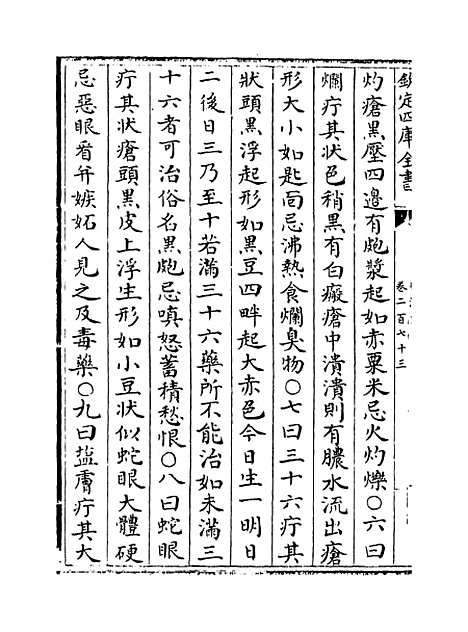 欽定四庫全書
卷二百七十三
灼瘡黑壓四邊有皰漿起如赤粟米忌火灼爍○六曰
爛疔其狀色稍黑有白瘢瘡中潰潰則有膿水流出瘡
形大小如匙面忌沸熱食爛臭物○七曰三十六疔其
狀頭黑浮起形如黑豆四畔起大赤色今日生一明日
二後日三乃至十若滿三十六藥所不能治如未滿三
十六者可治俗名黑皰忌嗔怒蓄積愁恨○八曰蛇眼
疔其狀瘡頭黑皮上浮生形如小豆狀似蛇眼大體硬
忌惡眼看并嫉妬人見之及毒藥○九曰盐膚疔其大